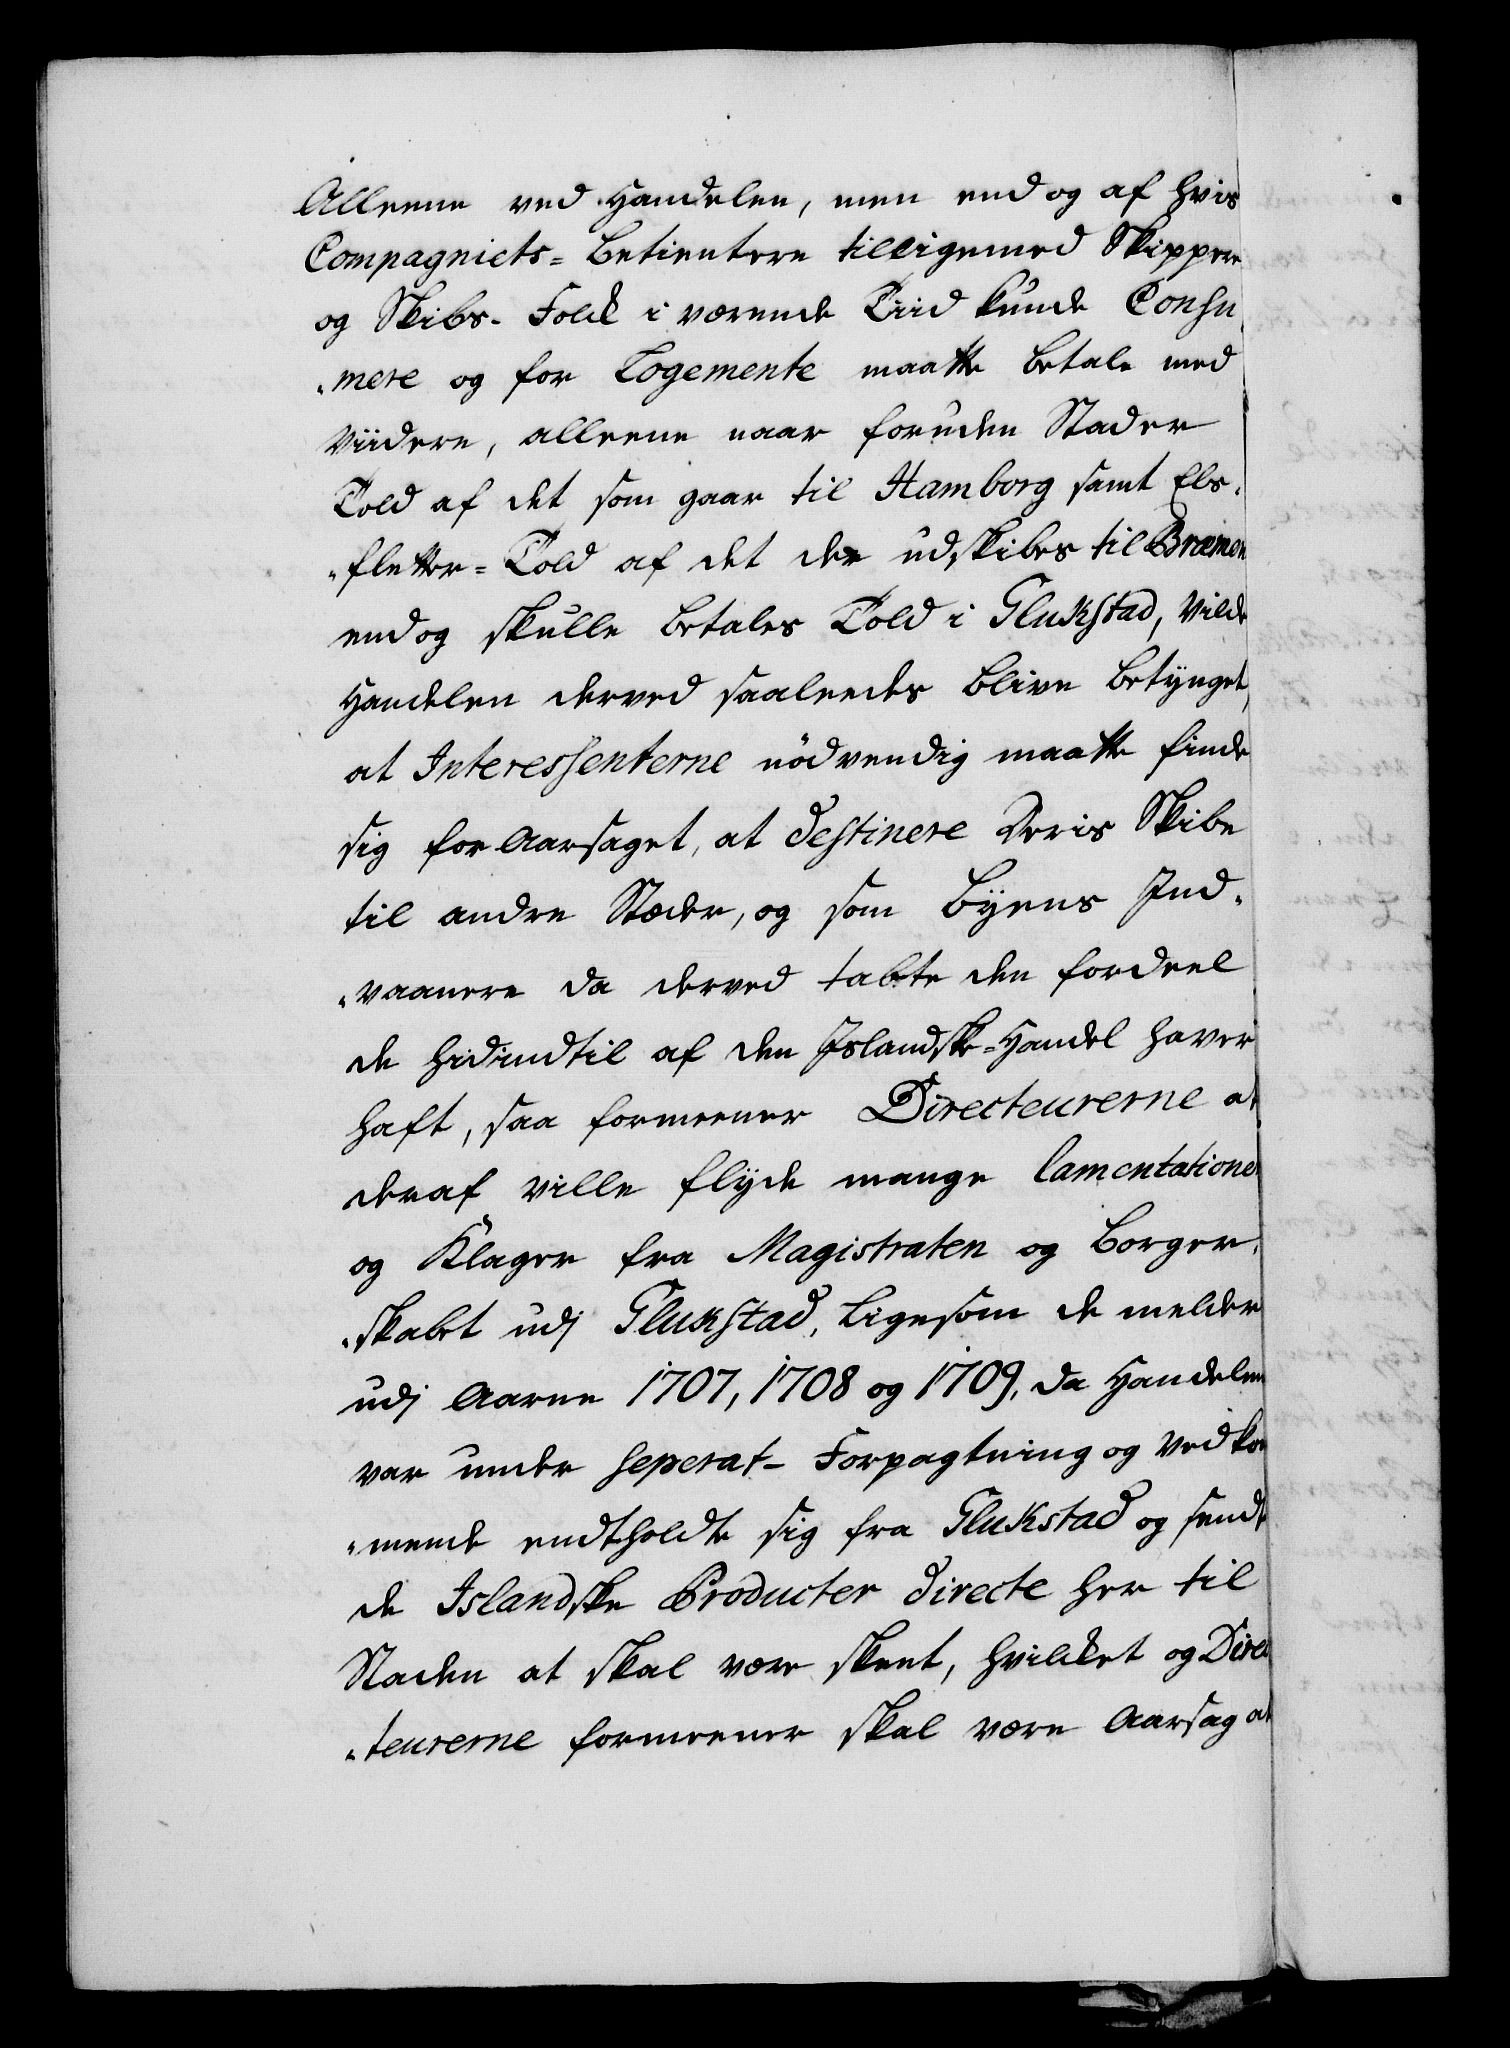 Alleene ved Handelen, men end og af hvis
Compagniets- betientere tilligemed Skippere
og Skibs- Folk i værende Tiid kunde Consu
"mere og for Logemente maatte betale med
viidere, alleene naar foruden Stader
Told af det som gaar til Hamborg samt Els-
"fletter- Told af det der udskibes til Bræmen
end og skulle betales Told i Glukstad, vilde
Handelen derved saaleedes blive betÿnget,
at Interessenterne nödvendig maatte finde
sig for Aarsaget, at destinere Deris Skibe
til andre Stæder, og som Bÿens Ind-
"vaanere da derved tabte den fordeel
de hidindtil af den Islandske-Handel haver
haft, saa formeener Directeurerne at
deraf ville flÿde mange lamentationer
og Klager fra Magistraten og Borger-
"skabet udj Glukstad, ligesom de melder
udj Aarne 1707, 1708 og 1709, da Handelen
var under seperat- Forpagtning og vedkom
"mende endtholdte sig fra Glukstad og sendte
de Islandske Producter directe her til
Staden at skal være skeet, hvilket og Direc
"teurerne formeener skal være Aarsag at